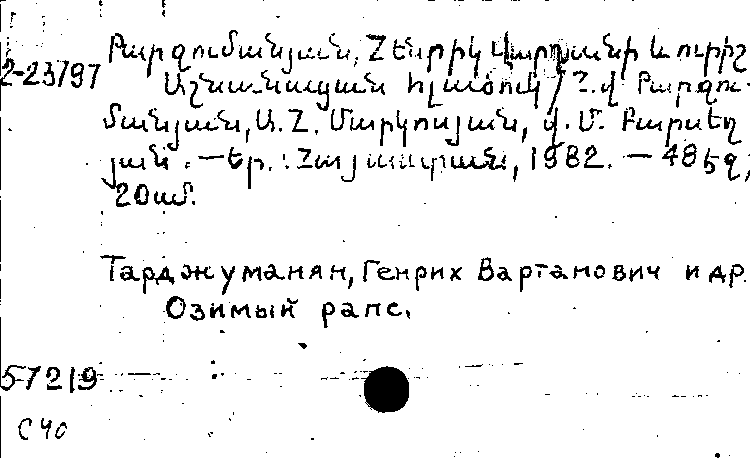 Բարզումանյան, Հենրիկ Վարդանի և ուրիշ
2-23797
Աշնանացան հլածուկ / Հ.Վ. Բարզու-
մանյան, Ա. Հ. Մարկոսյան, Վ. Մ. Բարսեղ
յան. — Եր.: Հայաստան, 1982. — 48 էջ,
20սմ.
Тарджуманян, Генрих Вартанович и др.
Озимый рапс.
57219
С 40